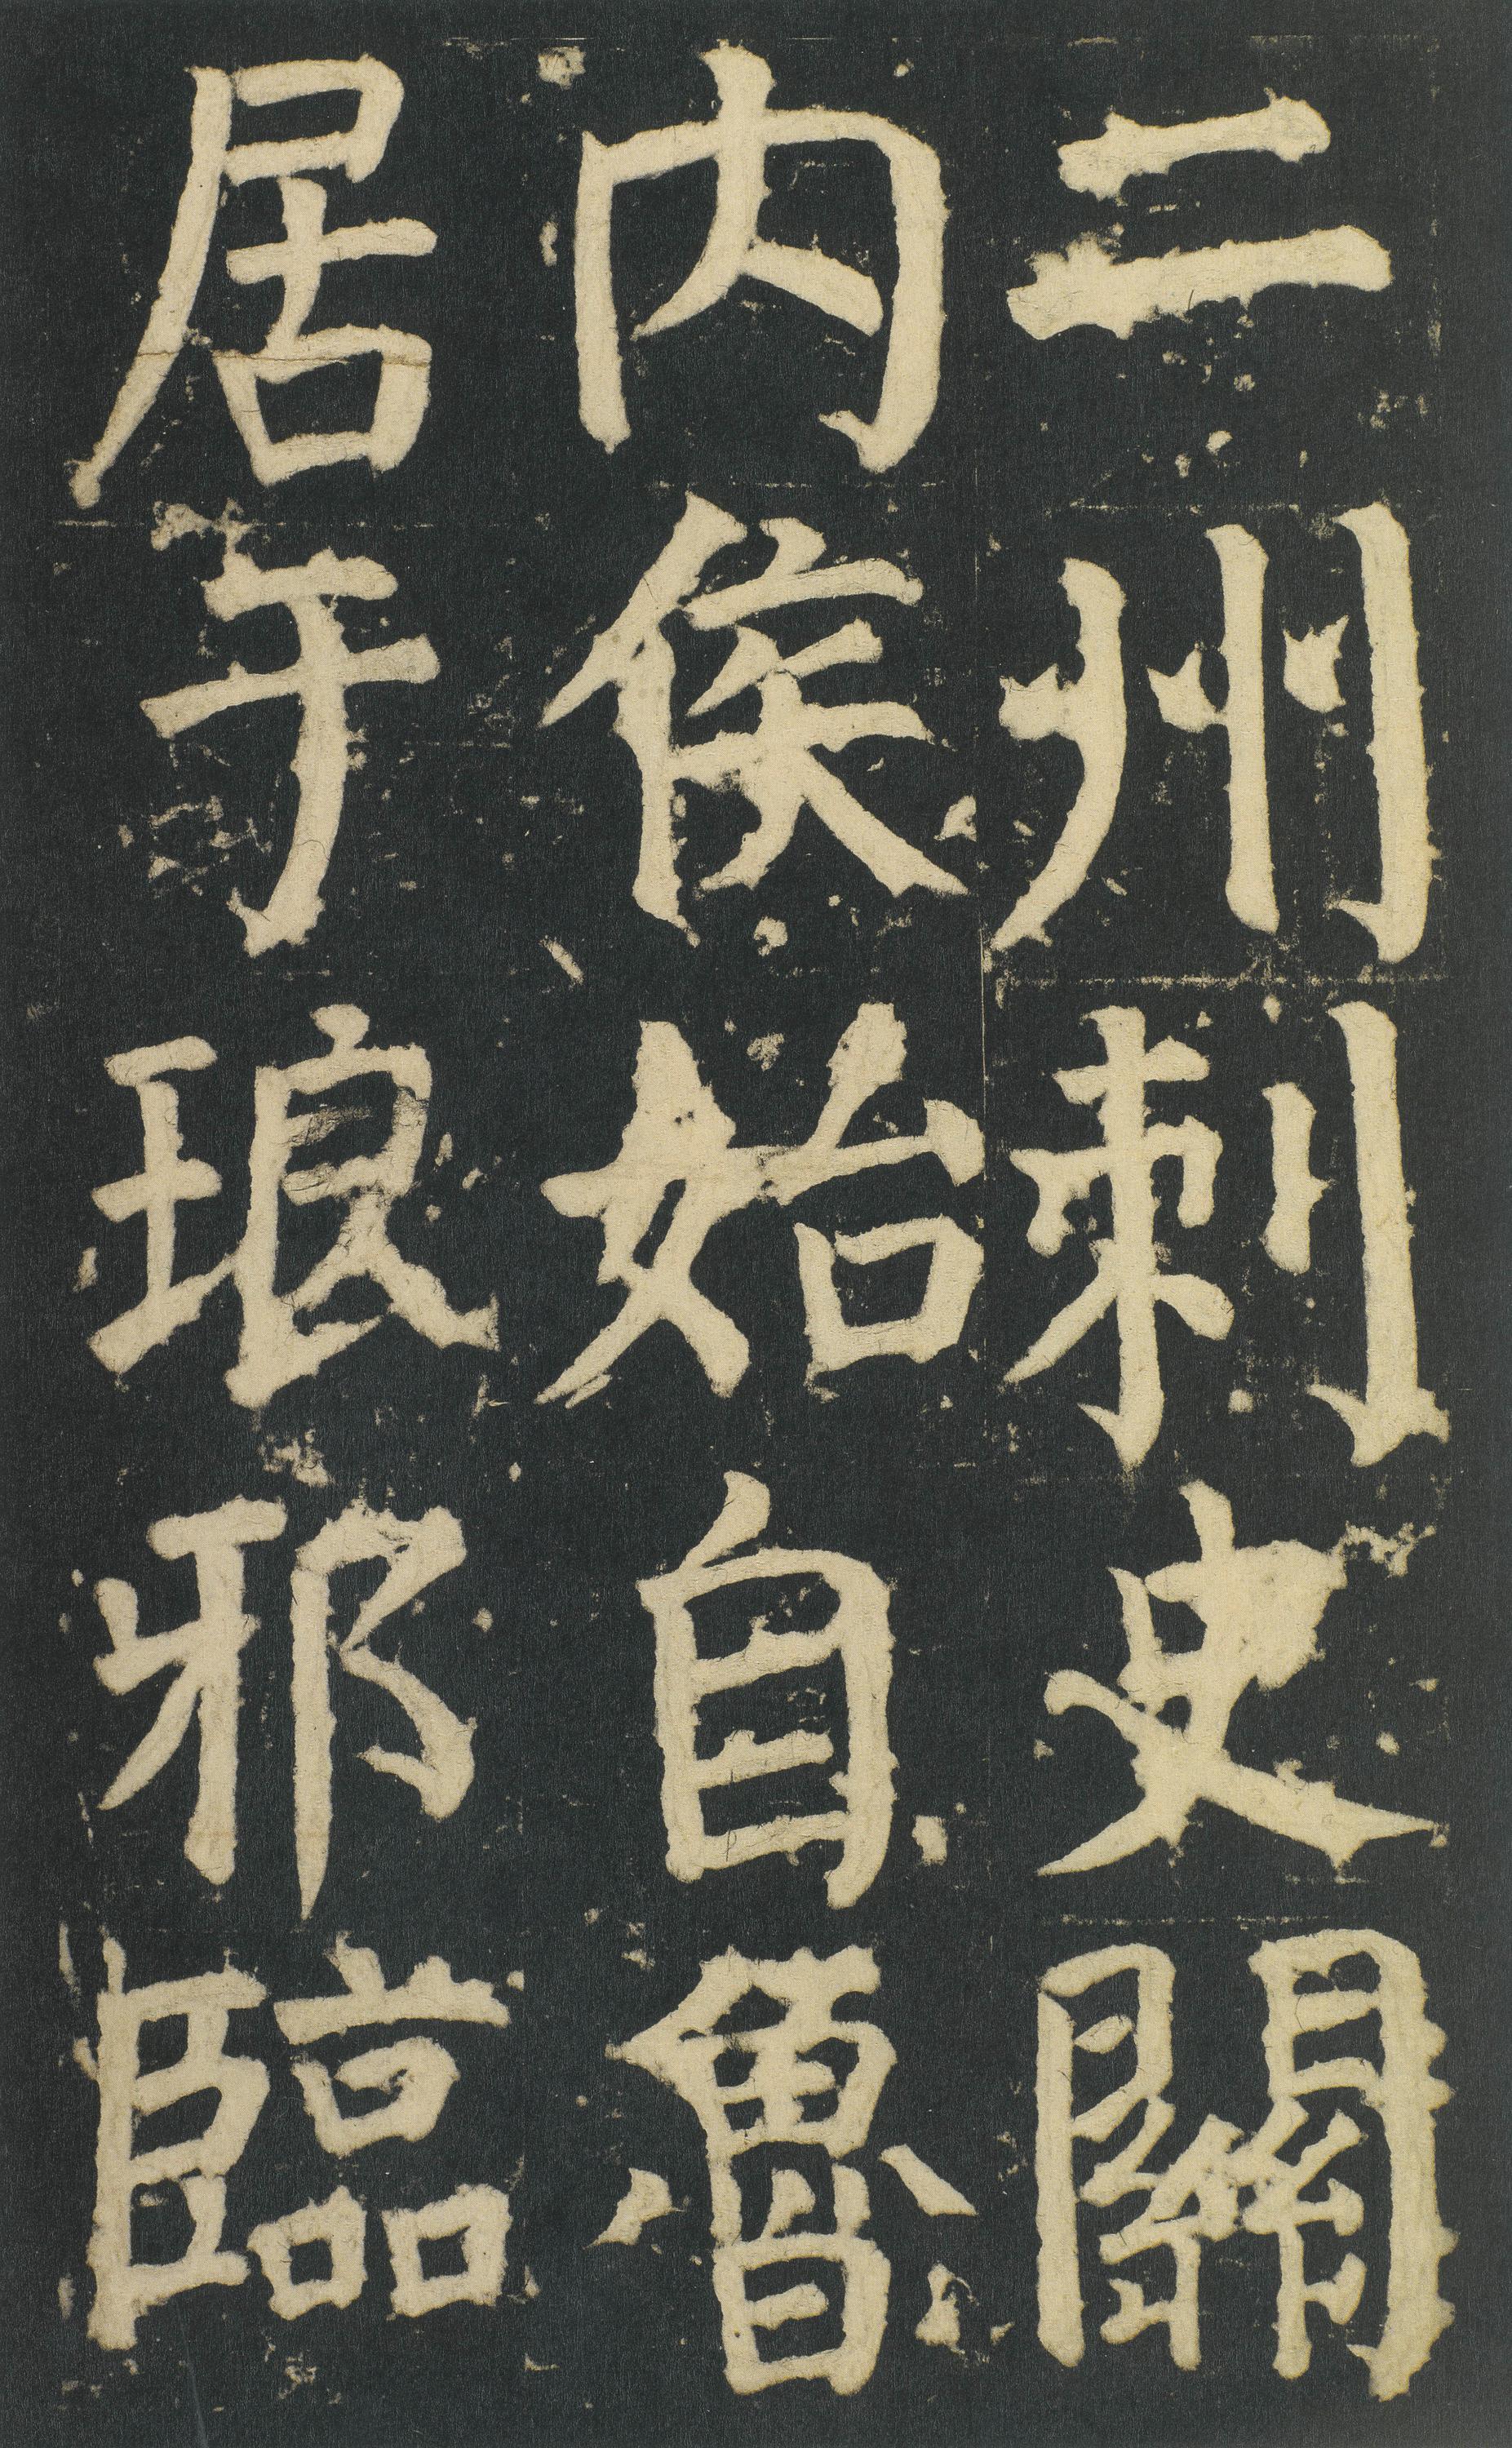 二州刺史關
内侯始自魯
居于琅邪臨